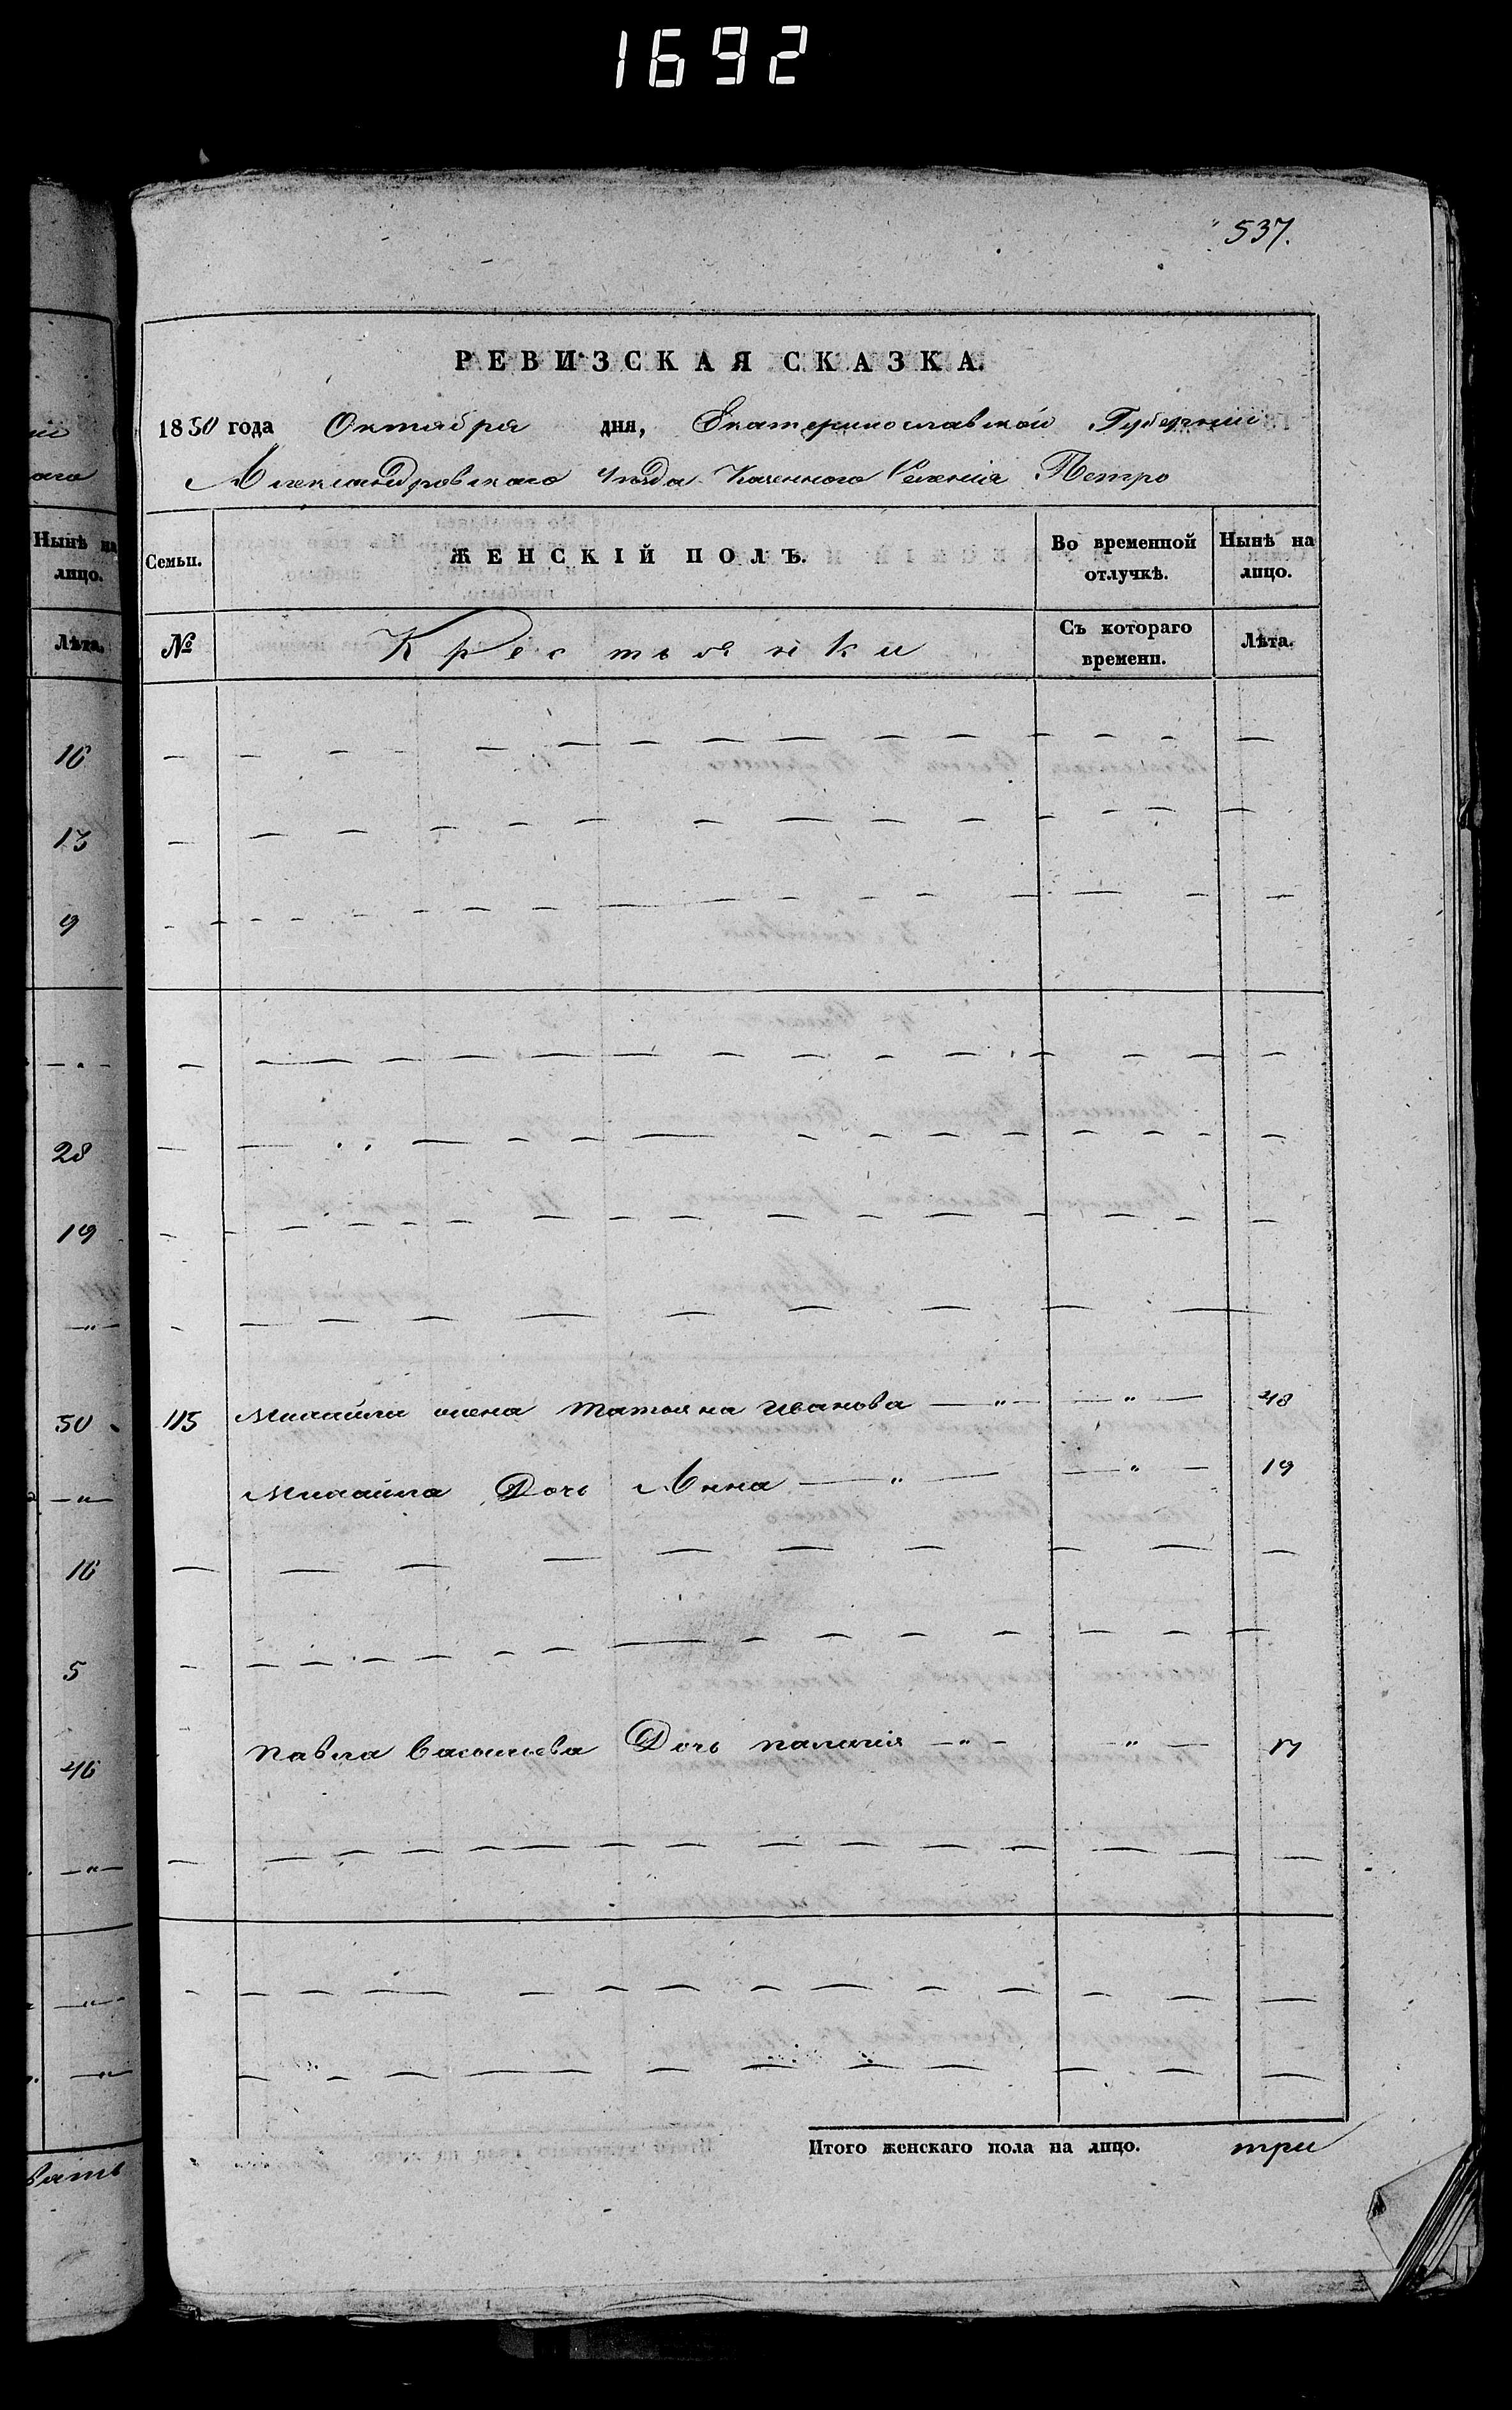 1692
537.
РЕВИЗСКАЯ СКАЗКА.
1850 года Октября дня, Екатеринославской Губернии
Александровского Уѣзда Казенного Селенія Петро
Нынѣ на лицо.
Семьи. ЖЕНСКІЙ ПОЛЪ. Во временной отлучкѣ. Нынѣ на лицо.
Лѣта.
№ Крестьянки Съ котораго времени. Лѣта.
16
13
9
28
19
50 115 Михайла жена Татьяна Иванова — " — — " — 48
Михайла Дочь Анна — " — — " — 19
16
5
46 Павла Васильева Дочь Палагія — " — — " — 17
вать
Итого женскаго пола на лицо. три